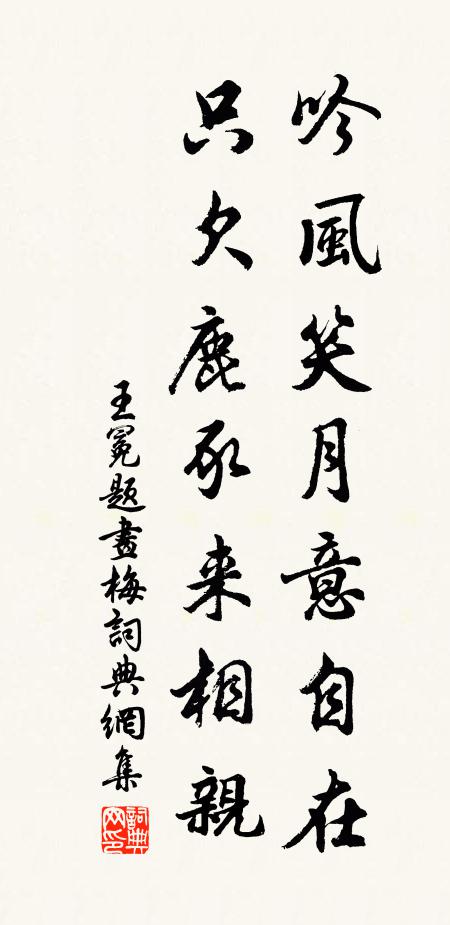 吟風笑月意自在
只欠鹿豕来相親
王冕題畫梅詞典網集
詞典网印